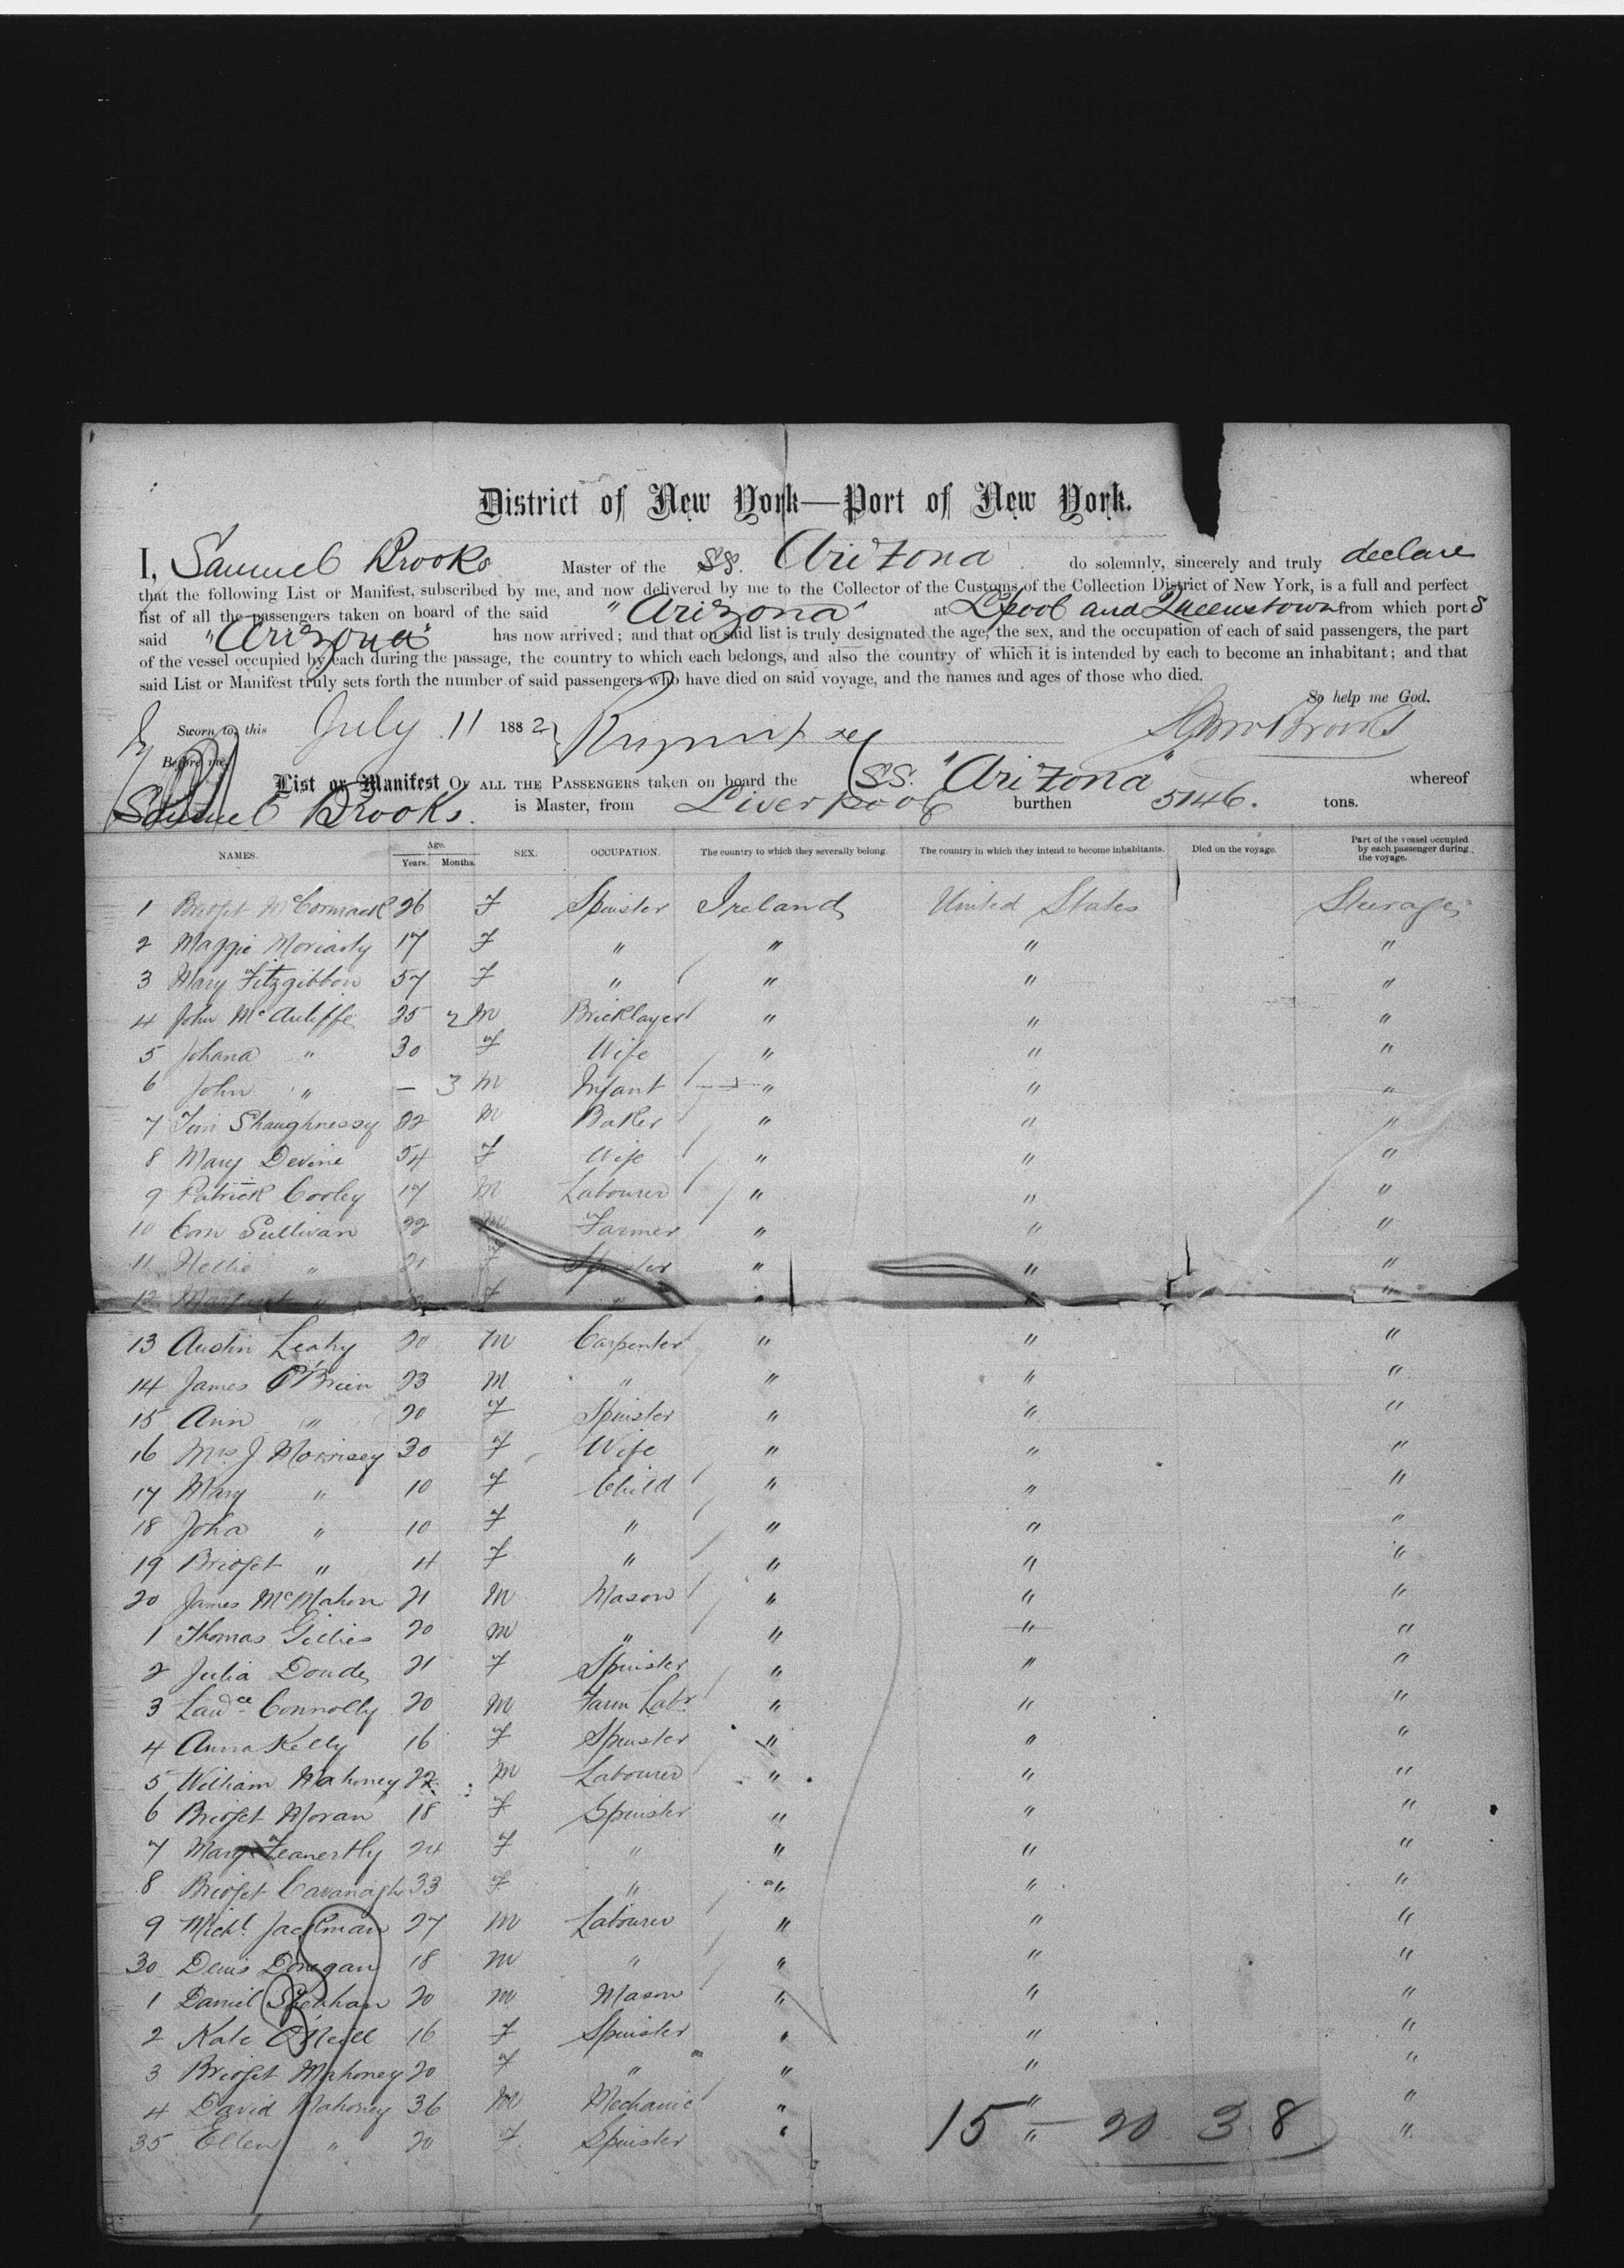 District of New York—Port of New York.
I, Samuel Brooks Master of the SS. Arizona do solemnly, sincerely and truly declare
that the following List or Manifest, subscribed by me, and now delivered by me to the Collector of the Customs of the Collection District of New York, is a full and perfect
list of all the passengers taken on board of the said "Arizona" at L'pool and Queenstown from which port s
said "Arizona" has now arrived; and that on said list is truly designated the age, the sex, and the occupation of each of said passengers, the part
of the vessel occupied by each during the passage, the country to which each belongs, and also the country of which it is intended by each to become an inhabitant; and that
said List or Manifest truly sets forth the number of said passengers who have died on said voyage, and the names and ages of those who died.
So help me God.
Sworn to this July 11 1882 Saml Brooks
Before me,
List or Manifest OF ALL THE PASSENGERS taken on board the SS. "Arizona" whereof
Samuel Brooks. is Master, from Liverpool burthen 5146. tons.
NAMES. Age. Years. Months. SEX. OCCUPATION. The country to which they severally belong. The country in which they intend to become inhabitants. Died on the voyage. Part of the vessel occupied by each passenger during the voyage.
1 Bridget McCormack 26 F Spinster Ireland United States Steerage
2 Maggie Moriarty 17 F " " " "
3 Mary Fitzgibbon 57 F " " " "
4 John McAuliffe 25 2 M Bricklayer " " "
5 Johana " 30 F Wife " " "
6 John " — 3 M Infant " " "
7 Tim Shaughnessy 22 M Baker " " "
8 Mary Devine 54 F Wife " " "
9 Patrick Cooley 17 M Labourer " " "
10 Corn Sullivan 22 M Farmer " " "
11 Nellie " 21 F Spinster " " "
12 Margaret " F " " " "
13 Austin Leahy 20 M Carpenter " " "
14 James O'Brien 23 M " " " "
15 Ann " 20 F Spinster " " "
16 Mrs J Morrisey 30 F Wife " " "
17 Mary " 10 F Child " " "
18 Joha " 10 F " " " "
19 Bridget " 4 F " " " "
20 James McMahon 21 M Mason " " "
1 Thomas Gillies 20 M " " " "
2 Julia Doude 21 F Spinster " " "
3 Lawce Connolly 20 M Farm Labr " " "
4 Anna Kelly 16 F Spinster " " "
5 William Mahoney 22 M Labourer " " "
6 Bridget Moran 18 F Spinster " " "
7 Mary 24 F " " " "
8 Bridget Cavanagh 33 F " " " "
9 Michl Jackman 27 M Labourer " " "
30 Denis Donegan 18 M " " " "
1 Daniel Sheehan 20 M Mason " " "
2 Kate O'Neill 16 F Spinster " " "
3 Bridget Mahoney 20 F " " " "
4 David Mahoney 36 M Mechanic " " "
35 Ellen " 20 F Spinster " " "
15 — 20 3 8